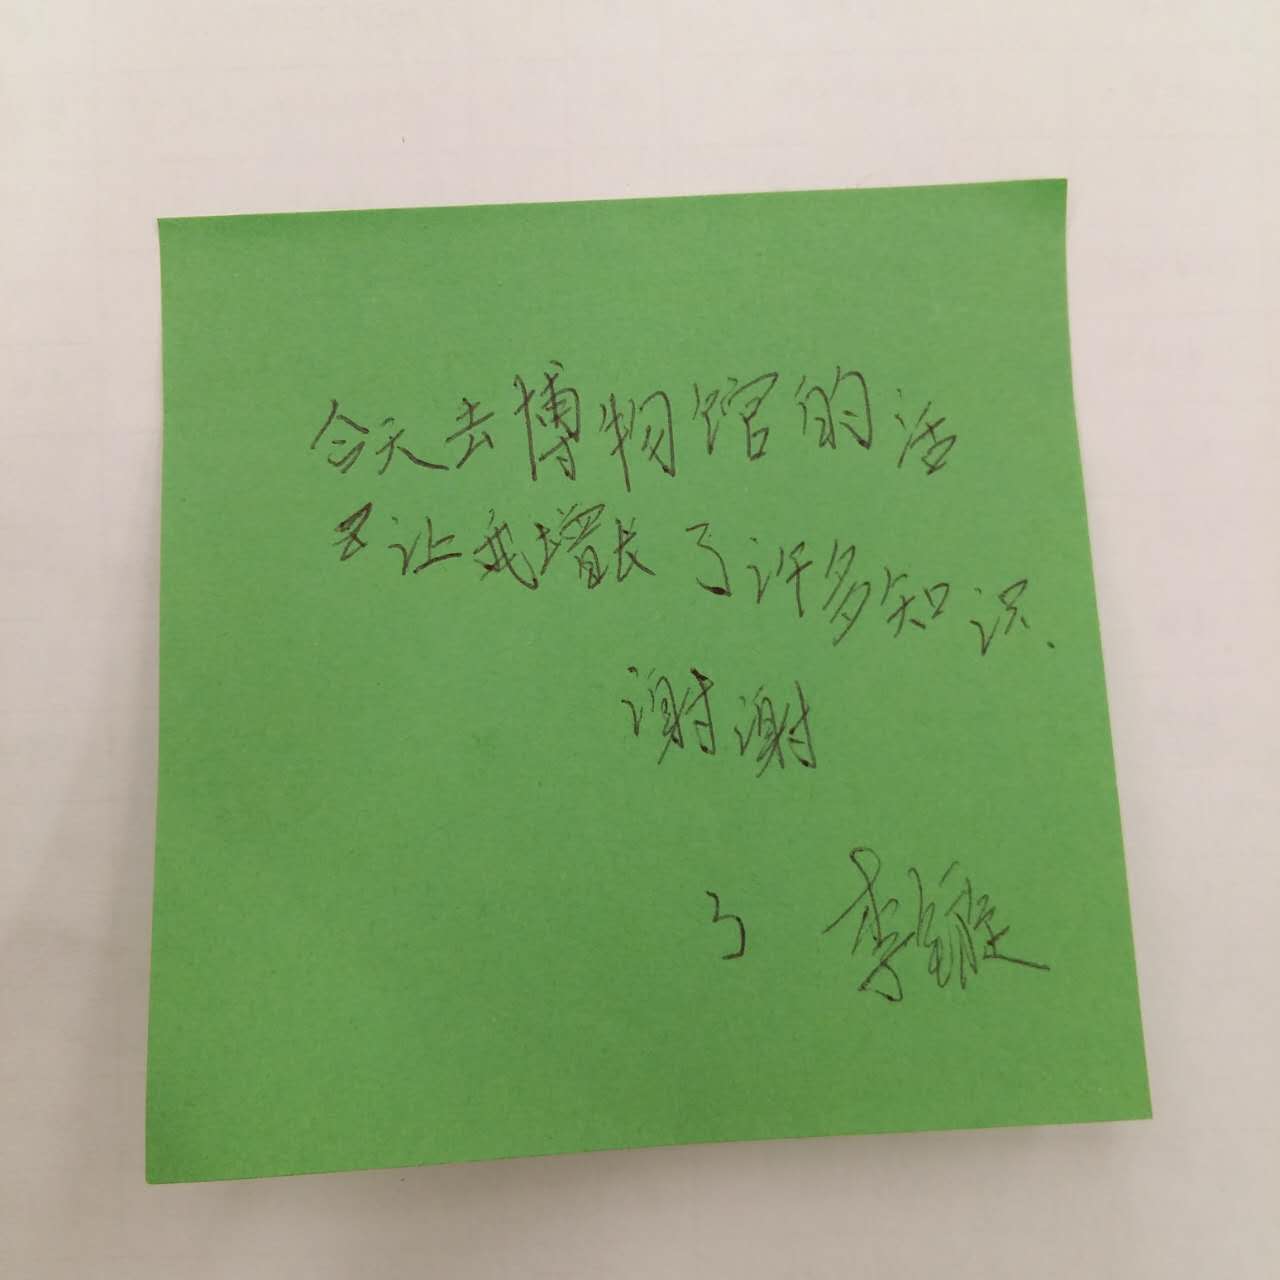 今天去博物馆的活
让我增长了许多知识.
谢谢
李